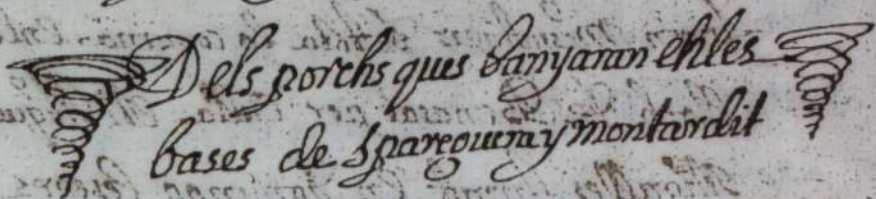 Dels porchs ques banyaran en les
bases de Spareguera y montardit